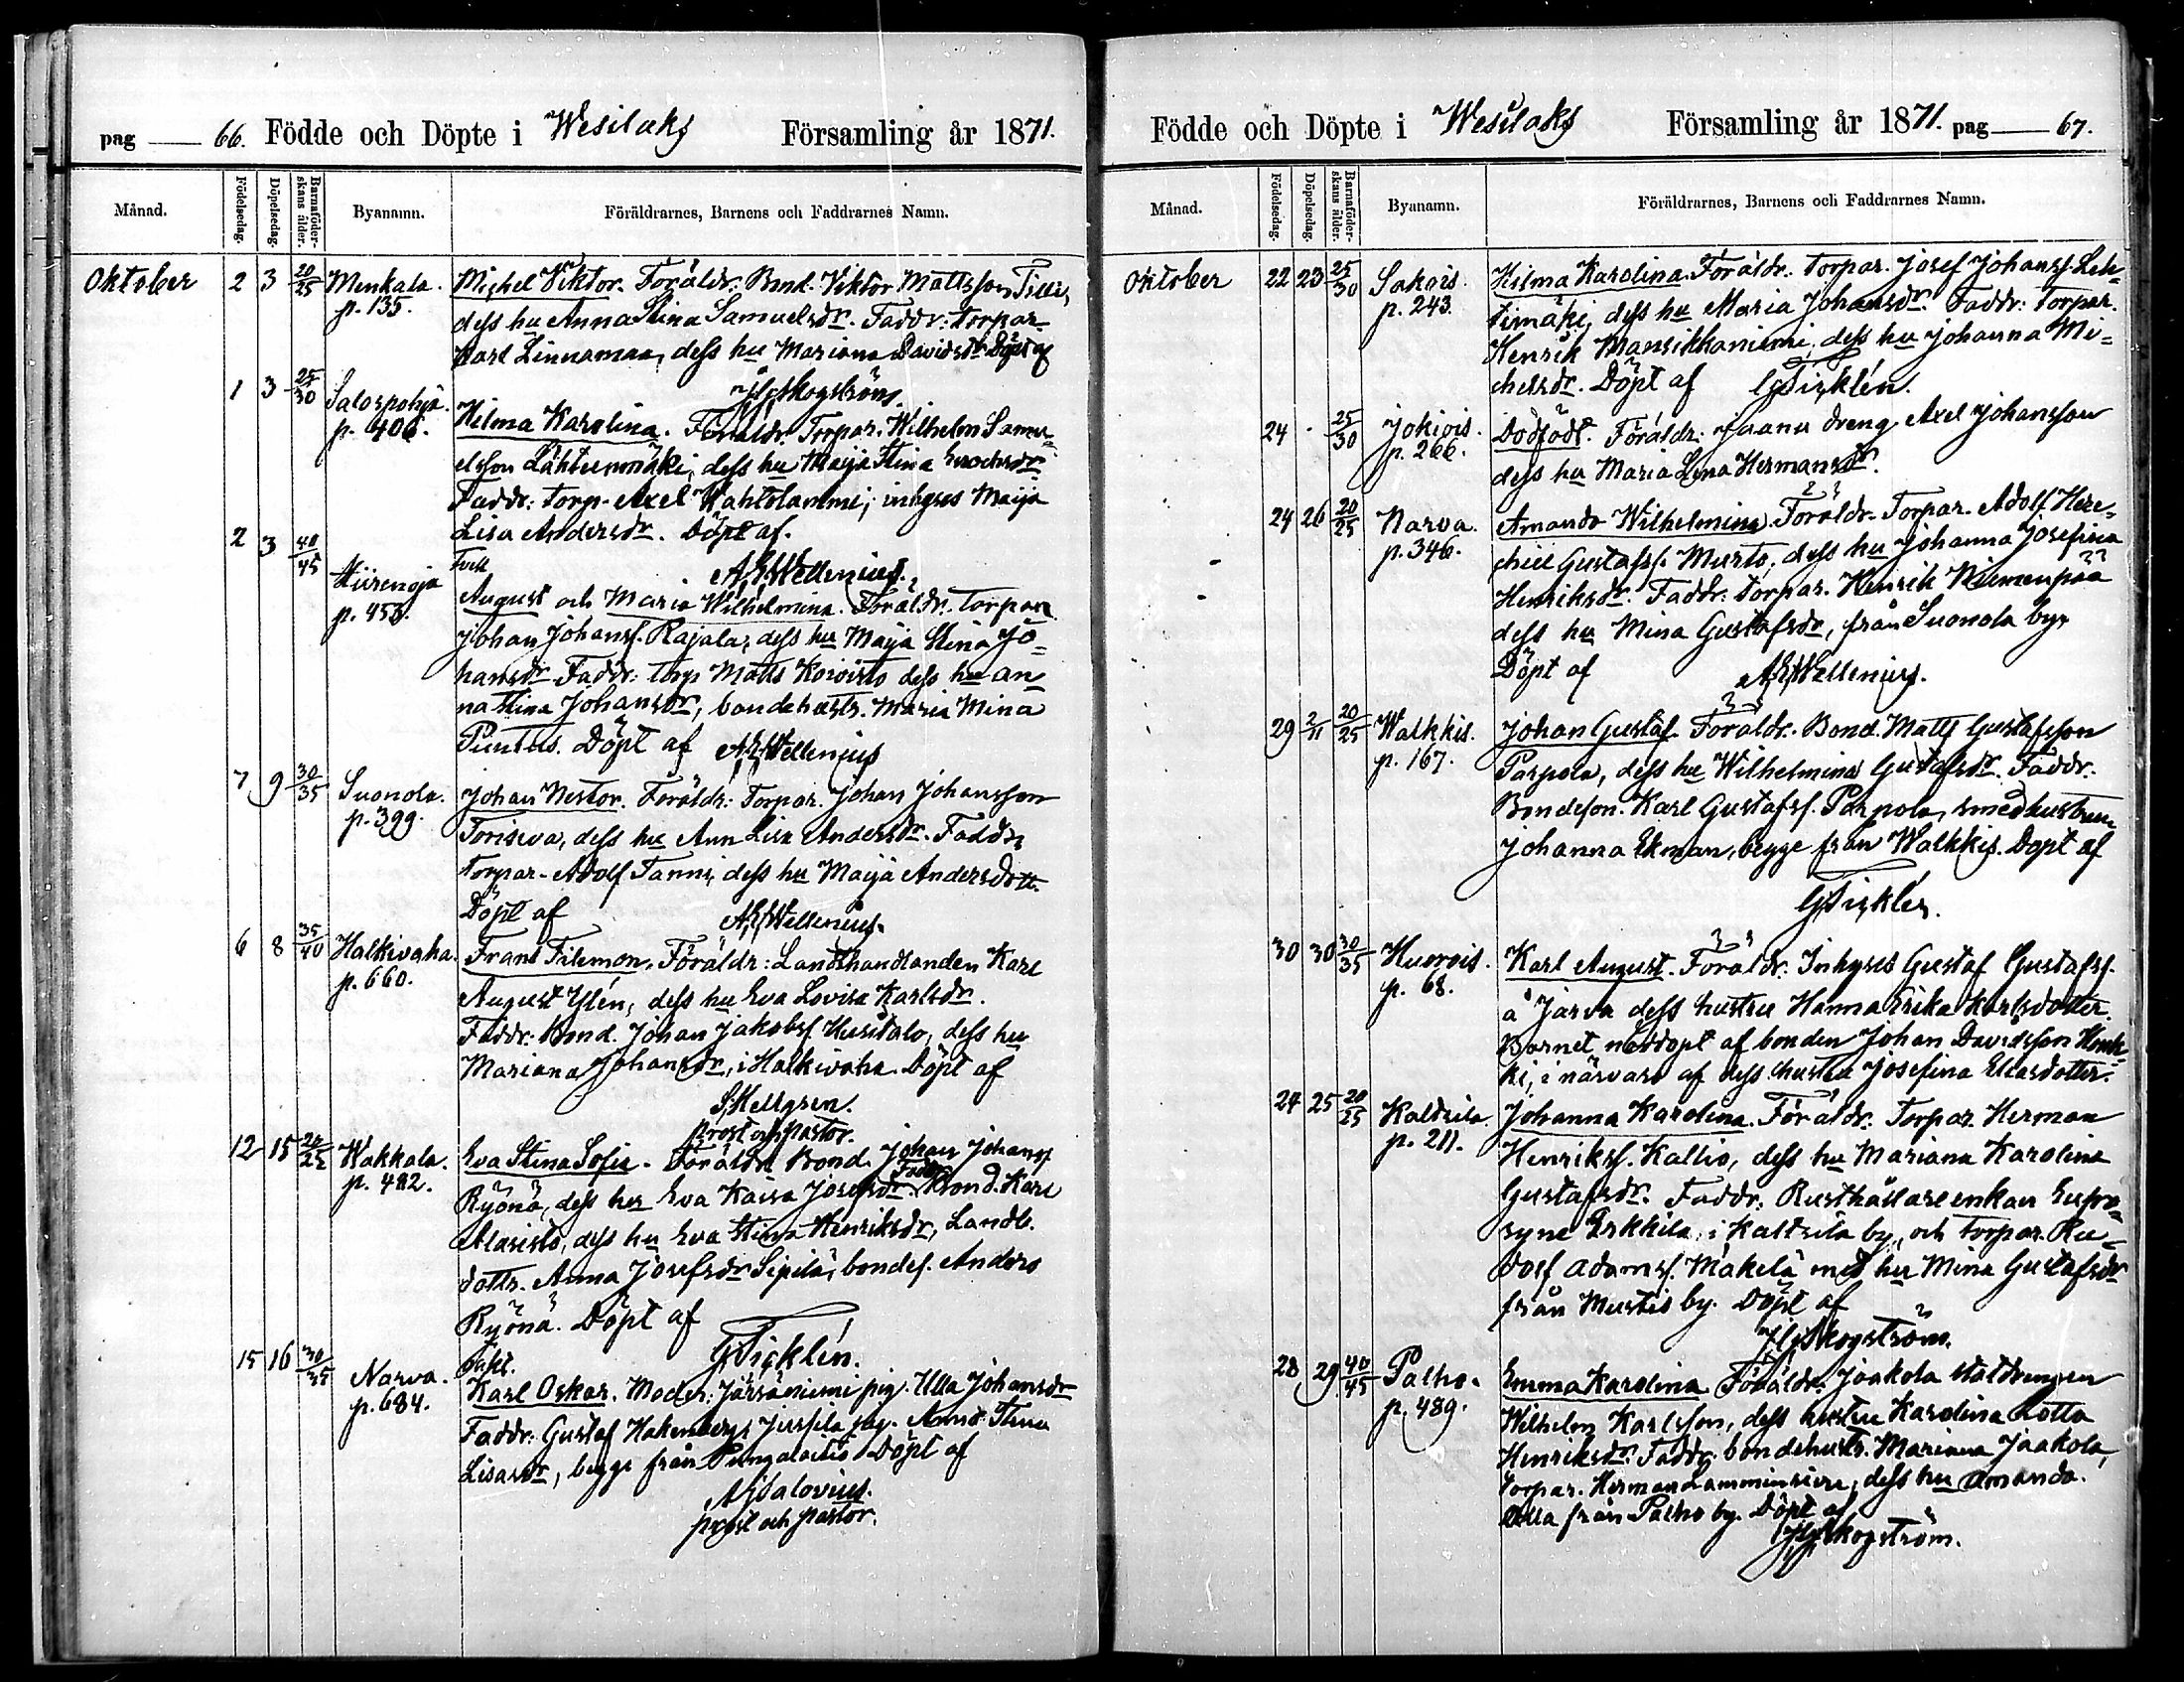 pag 66. Födde och Döpte i Wesilaks Församling år 1871.
Månad. Födelsedag. Döpelsedag. Barnaföderskans ålder. Byanamn. Föräldrarnes, Barnens och Faddrarnes Namn.
Oktober 2 3 20/25 Menkala. p. 135. Michel Viktor. Föräldr: Bond. Viktor Mattsson Tilli,
dess hu Anna Stina Samuelsdr. Faddr: torpar.
Karl Linnamaa, dess hu Mariana Davidsdr. Döpt af
Skogström.
1 3 25/30 Salospohja. p. 406. Hilma Karolina. Föräldr. Torpar. Wilhelm Samu=
elsson Lähteenmäki, dess hu Maija Stina Enochsdr
Faddr: torp. Axel Wahtolammi, inhyses Maija
Lisa Andersdr. Döpt af.
A. E. Wellenius.
2 3 40/45 Hiirenoja p. 453. Tvill
August och Maria Wilhelmina. Föräldr. Torpar.
Johan Johanss. Rajala, dess hu Maija Stina Jo=
hansdr Faddr: torp Matts Koivisto dess hu An
na Stina Johansdr, bondehustr. Maria Mina
Puntus. Döpt af A. E. Wellenius
7 9 30/35 Suonola. p. 399. Johan Nestor. Föräldr: Torpar. Johan Johansson
Toriseva, dess hu Ann Lisa Andersdr. Faddr,
torpar. Adolf Tanni, dess hu Maija Andersdott.
Döpt af A. E. Wellenius.
6 8 35/40 Halkivaha. p. 660. Frans Filemon. Föräldr: Landthandlanden Karl
August Ylén, dess hu Eva Lovisa Karlsdr.
Faddr: Bond. Johan Jakobss. Husitalo, dess hu
Mariana Johansdr, i Halkivaha. Döpt af
S. Hellgren.
Prost och pastor.
12 15 20/25 Wakkala. p. 482. Eva Stina Sofia. Föräldr. Bond. Johan Johanss
Ryönä, dess hu Eva Kaisa Josefsdr. Faddr: Bond. Karl
Alasisto, dess hu Eva Stina Henriksdr, Landb.
dottr. Anna Josefsdr Sipilä, bondes. Anders
Ryönä. Döpt af
G. Ticklén.
15 16 30/35 Narva. p. 684. Oäkt.
Karl Oskar. Moder: Järsäniemi pig. Ulla Johansdr
Faddr: Gustaf Hakenberg, Jussila pig. Anna Stina
Lisasdr, begge från Pungalaitio Döpt af
Salovius.
prost och pastor.
Födde och Döpte i Wesilaks Församling år 1871. pag 67.
Månad. Födelsedag. Döpelsedag. Barnaföderskans ålder. Byanamn. Föräldrarnes, Barnens och Faddrarnes Namn.
Oktober 22 23 25/30 Sakois. p. 243. Hilma Karolina. Föräldr. torpar. Josef Johanss. Leh=
timäki, dess hu Maria Johansdr. Faddr: torpar.
Henrik Mansikkaniemi, dess hu Johanna Mi=
chelsdr. Döpt af G. Ticklén.
24 . 25/30 Jokiois. p. 266. Dödfödt. Föräldr: Juanu dreng Axel Johansson
dess hu Maria Lena Hermansdr.
24 26 20/25 Narva. p. 346. Amanda Wilhelmina. Föräldr. Torpar. Adolf Heze=
chiel Gustafss. Musto, dess hu Johanna Josefina
Henriksdr. Faddr: torpar. Henrik Niemenpää
dess hu Mina Gustafsdr, från Suonola by.
Döpt af A. E. Wellenius.
29 2/11 20/25 Walkkis. p. 167. Johan Gustaf. Föräldr. Bond. Matts Gustafsson
Parpola, dess hu Wilhelmina Gustafsdr. Faddr.
Bondeson. Karl Gustafss. Parpola, smedhustrun
Johanna Ekman, begge från Walkkis. Döpt af
G. Ticklén.
30 30 30/35 Kuorois. p. 68. Karl August. Föräldr: Inhyses Gustaf Gustafss.
å Järva dess hustru Hanna Erika Karlsdotter.
Barnet nöddöpt af bonden Johan Davidsson
ki, i närvaro af dess hustru Josefina Eliasdotter.
24 25 20/25 Kaltsila. p. 211. Johanna Karolina. Föräldr: Torpar. Herman
Henrikss. Kallio, dess hu Mariana Karolina
Gustafsdr. Faddr: Rusthållareenkan Eufro=
syne Erkkilä, i Kaltsila by, och torpar. Ru=
dolf Adamss. Mäkelä med hu Mina Gustafsdr
från Mustis by. Döpt af
Skogström.
28 29 40/45 Palho. p. 489. Emma Karolina. Föräldr: Jaakola staldrengen
Wilhelm Karlsson, dess hustru Karolina Lotta
Henriksdr. Faddr: bondehustr. Mariana Jaakola,
torpar. Herman Lamminsivu, dess hu Amanda.
alla från Palho by. Döpt af
Skogström.